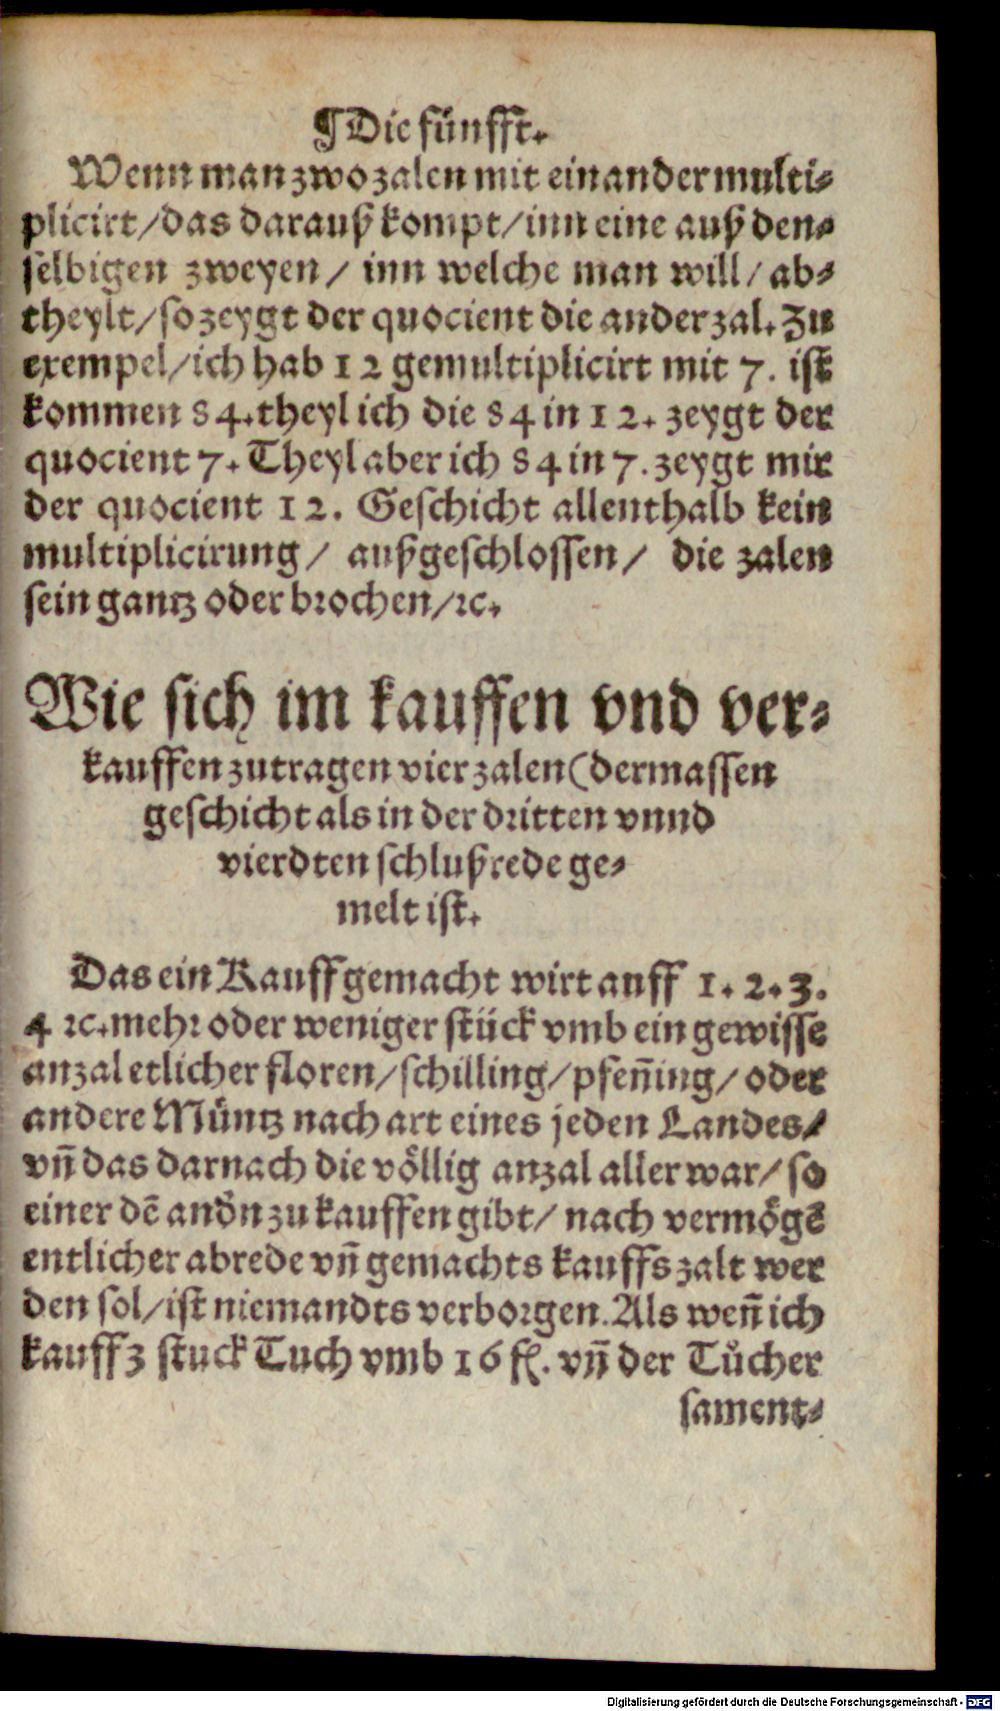 ¶Die fünfft.
Wenn man zwo zalen mit einander multi⸗
plicirt/das darauß kompt/inn eine auß den⸗
selbigen zweyen/ inn welche man will/ ab⸗
theylt/so zeygt der quocient die ander zal. Zu
exempel/ich hab 12 gemultiplicirt mit 7. ist
kommen 84. theyl ich die 84 in 12. zeygt der
quocient 7. Theyl aber ich 84 in 7. zeygt mir
der quocient 12. Geschicht allenthalb kein
multiplicirung/ außgeschlossen/ die zalen
sein gantz oder brochen/ꝛc.
Wie sich im kauffen vnd ver⸗
kauffen zutragen vier zalen (dermassen
geschicht als in der dritten vnnd
vierdten schlußrede ge⸗
melt ist.
Das ein Kauff gemacht wirt auff 1. 2. 3.
4 ꝛc. mehr oder weniger stück vmb ein gewisse
anzal etlicher floren/schilling/pfen̄ing/ oder
andere Müntz nach art eines jeden Landes/
vn̄ das darnach die völlig anzal aller war/ so
einer dē andn̄ zu kauffen gibt/ nach vermögē
entlicher abrede vn̄ gemachts kauffs zalt wer
den sol/ist niemandts verborgen. Als wen̄ ich
kauff 3 stuck Tuch vmb 16 fl. vn̄ der Tůcher
sament⸗
Digitalisierung gefördert durch die Deutsche Forschungsgemeinschaft - DFG